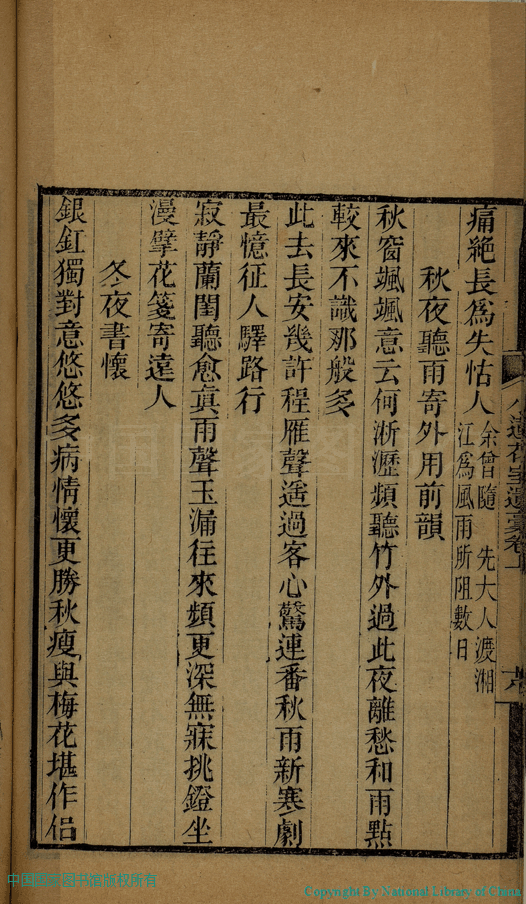 痛絶長爲失怙人 余曾隨 先大人渡湘
江爲風雨所阻數日
秋夜聽雨寄外用前韻
秋窗颯颯意云何淅瀝頻聽竹外過此夜離愁和雨點
較來不識那般多
此去長安幾許程雁聲遥過客心驚連番秋雨新寒劇
最憶征人驛路行
寂靜蘭閨聽愈真雨聲玉漏往來頻更深無寐挑鐙坐
漫擘花箋寄遠人
冬夜書懷
銀釭獨對意悠悠多病情懷更勝秋瘦與梅花堪作侣
中国国家图书馆版权所有
Copyright By National Library of China